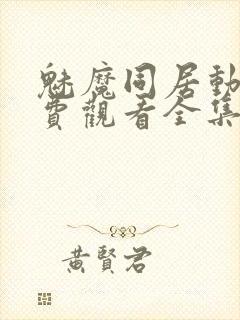 魅魔同居動
費觀看全集
黃賢君